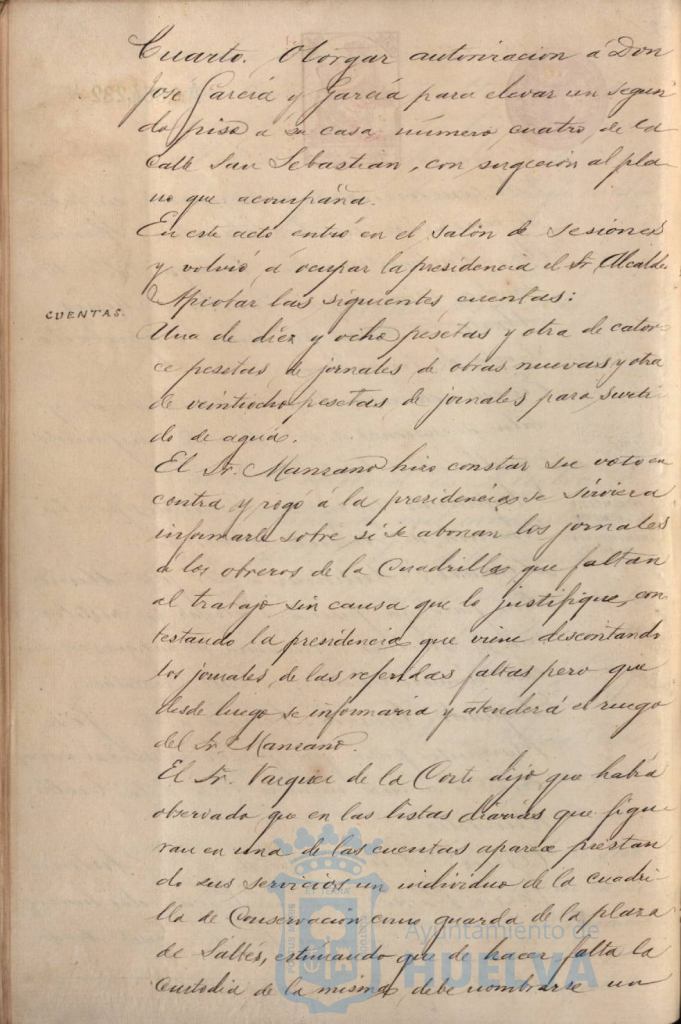 Cuarto. Otorgar autorizacion á Don
José Garciá y Garciá para elevar un segun
do piso á su casa número cuatro, de la
calle San Sebastian, con sugeción al pla-
no que acompaña.
En este acto entró en el salón de sesiones
y volvió á ocupar la presidencia el Sr. Alcalde.
CUENTAS.
Aprobar las siguientes cuentas:
Una de diez y ocho pesetas y otra de cator-
ce pesetas de jornales de obras nuevas y otra
de veintiocho pesetas de jornales para surti-
do de agua.
El Sr. Manzano hizo constar su voto en
contra y rogó á la presidencia se sirviera
informarle sobre si se abonan los jornales
á los obreros de la Cuadrilla que faltan
al trabajo sin causa que lo justifique, con
testando la presidencia que viene descontando
los jornales de las referidas faltas pero que
desde luego se informaria y atenderá el ruego
del Sr. Manzano.
El Sr. Vazquez de la Corte dijo que habia
observado que en las listas diarias que figu
ran en una de las cuentas aparece prestan
do sus servicios un individuo de la cuadri-
lla de Conservación como guarda de la plaza
de Saltés, estimando que de hacer falta la
custodia de la misma debe nombrarse un
Ayuntamiento de
HUELVA